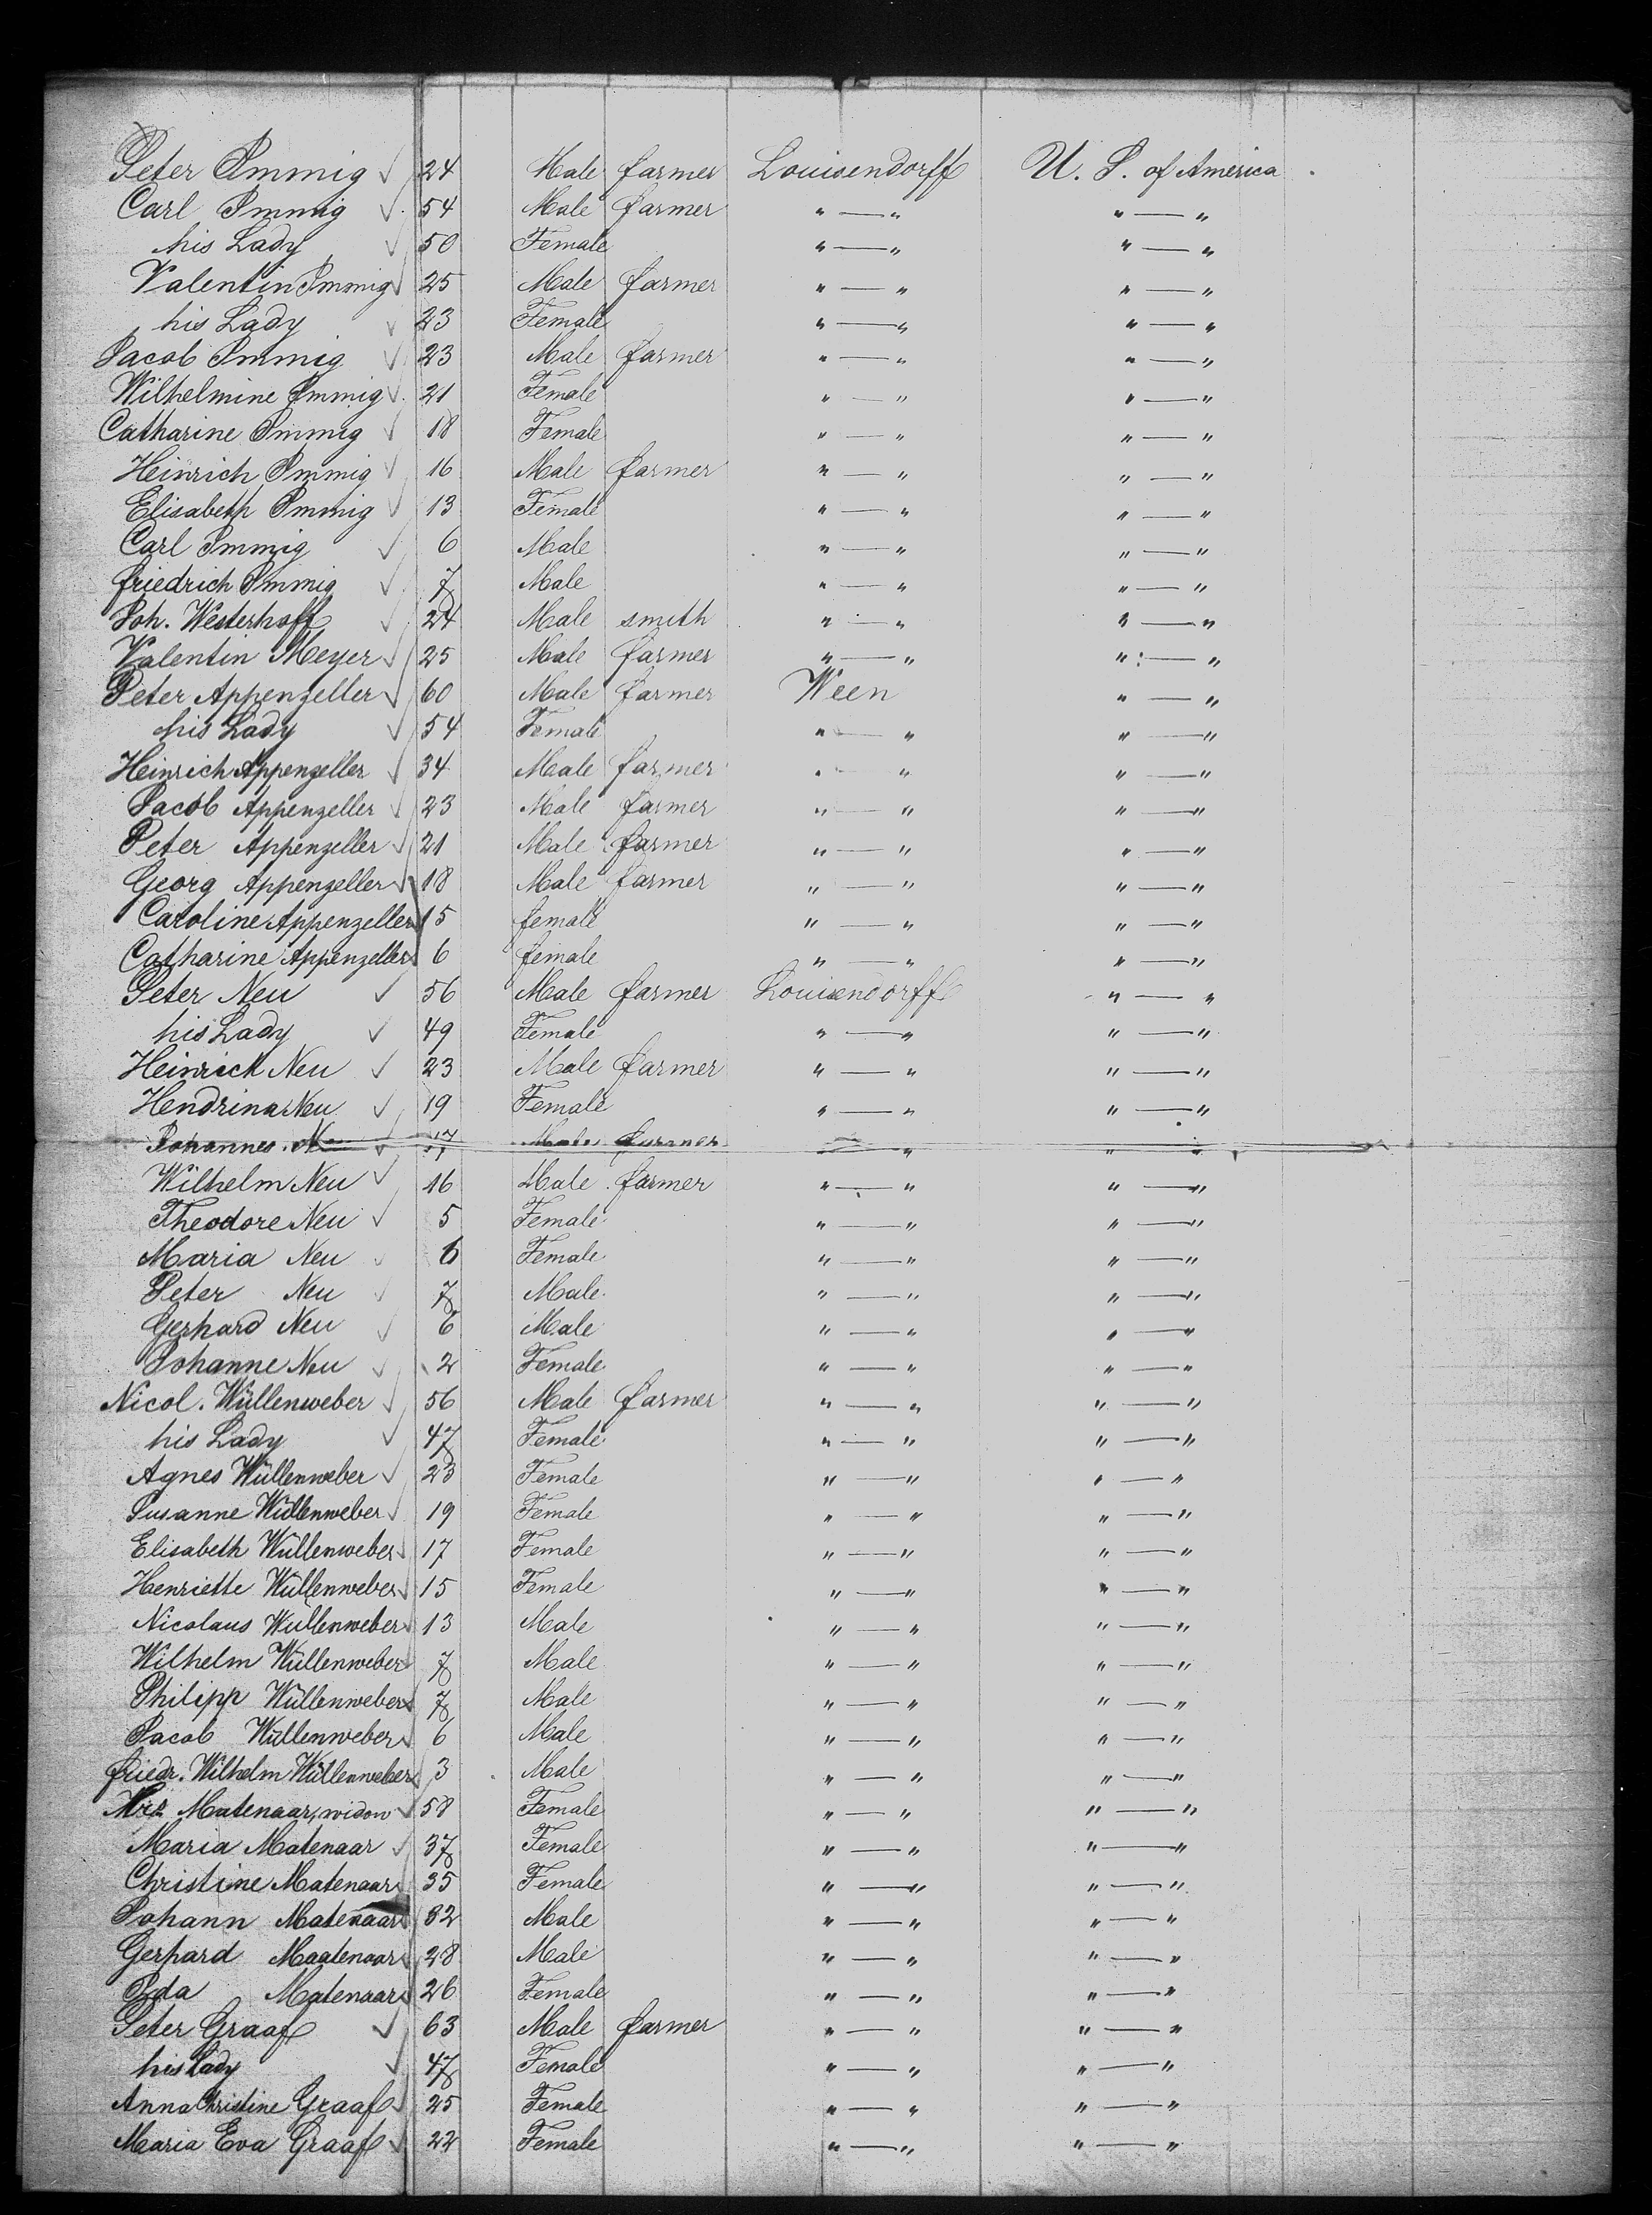 Peter Immig ✓ 24 Male farmer Louisendorff U. S. of America
Carl Immig ✓ 54 Male farmer " — " " — "
his Lady ✓ 50 Female " — " " — "
Valentin Immig ✓ 25 Male farmer " — " " — "
his Lady ✓ 23 Female " — " " — "
Jacob Immig ✓ 23 Male farmer " — " " — "
Wilhelmine Immig ✓ 21 Female " — " " — "
Catharine Immig ✓ 18 Female " — " " — "
Heinrich Immig ✓ 16 Male farmer " — " " — "
Elisabeth Immig ✓ 13 Female " — " " — "
Carl Immig ✓ 6 Male " — " " — "
friedrich Immig ✓ 7 Male " — " " — "
Joh. Westerhoff ✓ 24 Male smith " — " " — "
Valentin Meyer ✓ 25 Male farmer " — " " — "
Peter Appenzeller ✓ 60 Male farmer Ween " — "
his Lady ✓ 54 Female " — " " — "
Heinrich Appenzeller ✓ 34 Male farmer " — " " — "
Jacob Appenzeller ✓ 23 Male farmer " — " " — "
Peter Appenzeller ✓ 21 Male farmer " — " " — "
Georg Appenzeller ✓ 18 Male farmer " — " " — "
Caroline Appenzeller ✓ 15 female " — " " — "
Catharine Appenzeller ✓ 6 female " — " " — "
Peter Neu ✓ 56 Male farmer Louisendorff " — "
his Lady ✓ 49 Female " — " " — "
Heinrich Neu ✓ 23 Male farmer " — " " — "
Hendrina Neu ✓ 19 Female " — " " — "
Johannes Neu ✓ 17 Male farmer " — " " — "
Wilhelm Neu ✓ 16 Male farmer " — " " — "
Theodore Neu ✓ 5 Female " — " " — "
Maria Neu ✓ 6 Female " — " " — "
Peter Neu ✓ 7 Male " — " " — "
Gerhard Neu ✓ 6 Male " — " " — "
Johanne Neu ✓ 2 Female " — " " — "
Nicol. Wüllenweber ✓ 56 Male farmer " — " " — "
his Lady ✓ 47 Female " — " " — "
Agnes Wüllenweber ✓ 23 Female " — " " — "
Susanne Wüllenweber ✓ 19 Female " — " " — "
Elisabeth Wüllenweber ✓ 17 Female " — " " — "
Henriette Wüllenweber ✓ 15 Female " — " " — "
Nicolaus Wüllenweber ✓ 13 Male " — " " — "
Wilhelm Wüllenweber ✓ 7 Male " — " " — "
Philipp Wüllenweber ✓ 7 Male " — " " — "
Jacob Wüllenweber ✓ 6 Male " — " " — "
friedr. Wilhelm Wüllenweber ✓ 3 Male " — " " — "
Mrs Matenaar, widow ✓ 58 Female " — " " — "
Maria Matenaar ✓ 37 Female " — " " — "
Christine Matenaar ✓ 35 Female " — " " — "
Johann Matenaar ✓ 32 Male " — " " — "
Gerhard Maatenaar ✓ 28 Male " — " " — "
Ida Matenaar ✓ 26 Female " — " " — "
Peter Graaf ✓ 63 Male farmer " — " " — "
his Lady ✓ 47 Female " — " " — "
Anna Christine Graaf ✓ 25 Female " — " " — "
Maria Eva Graaf ✓ 22 Female " — " " — "